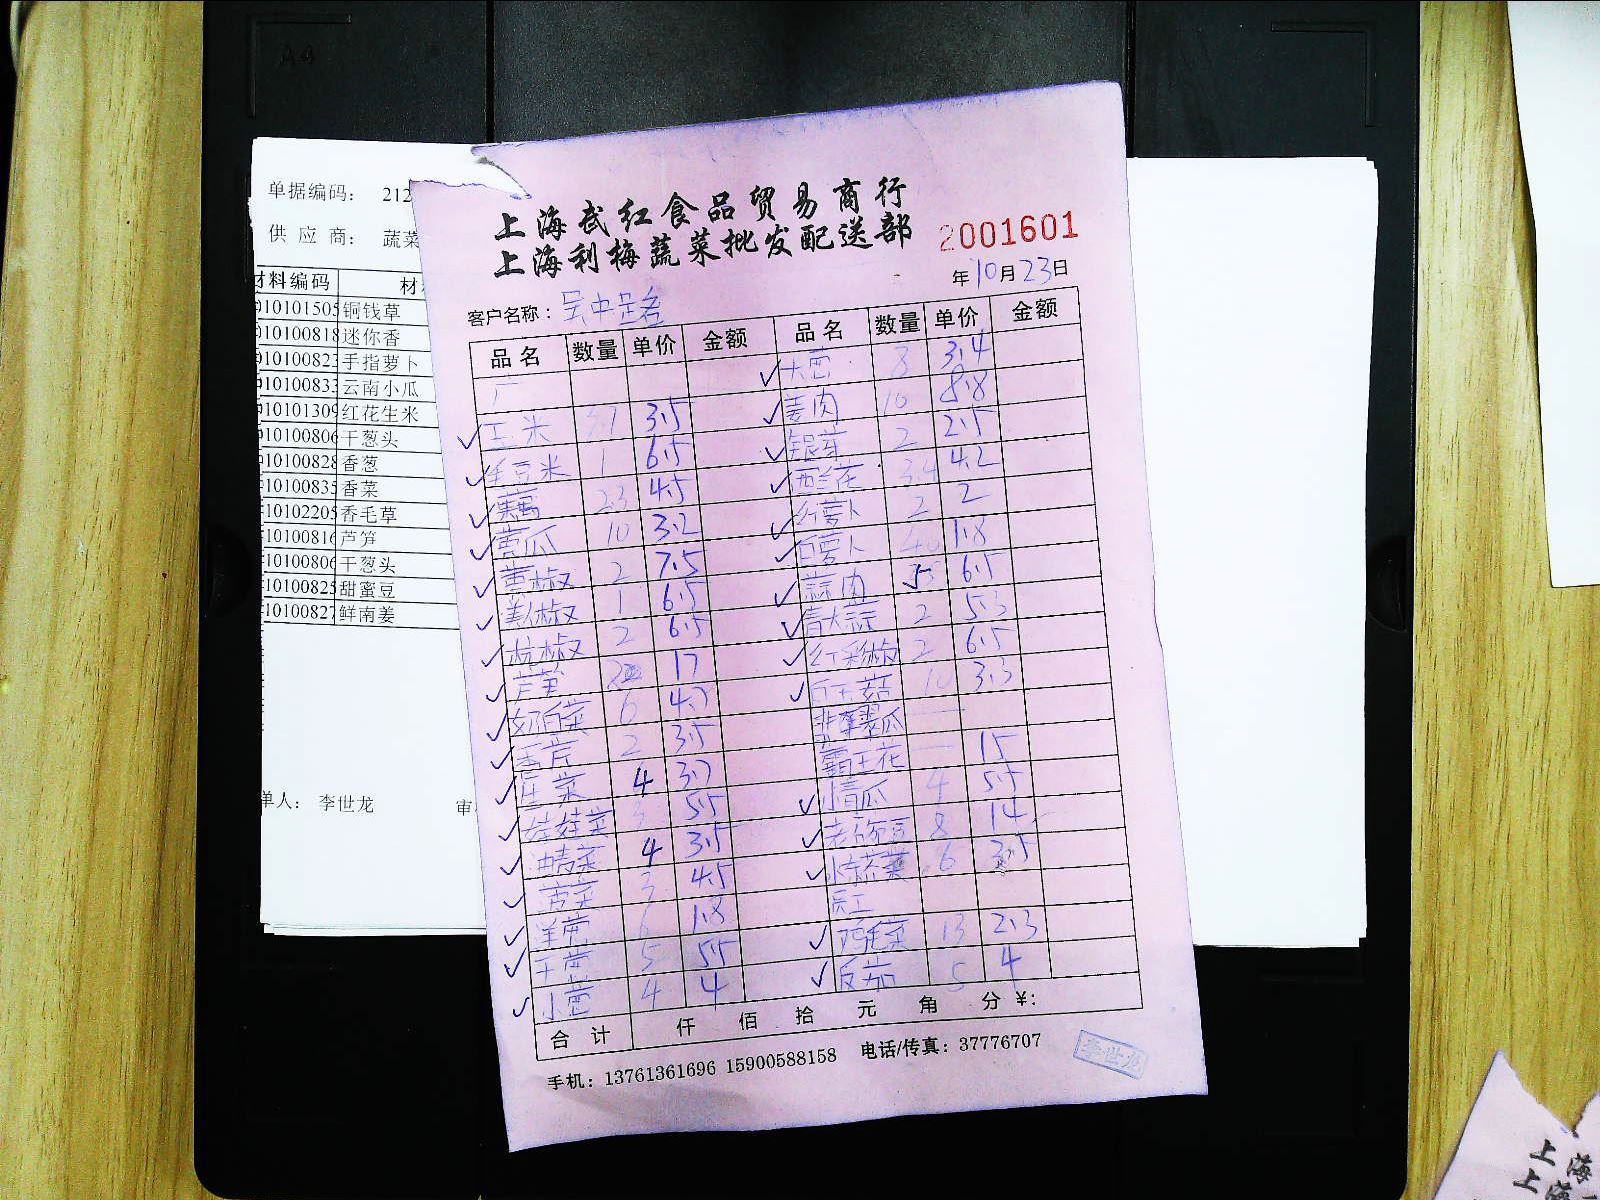 A4
单据编码： 212
供 应 商： 蔬菜
材料编码 材
010101505 铜钱草
010100818 迷你香
010100823 手指萝卜
010100833 云南小瓜
010101309 红花生米
010100806 干葱头
010100828 香葱
010100835 香菜
010102205 香毛草
010100816 芦笋
010100806 干葱头
010100825 甜蜜豆
010100827 鲜南姜
单人： 李世龙 审
上海武红食品贸易商行
上海利梅蔬菜批发配送部
2001601
年10月23日
客户名称：吴中
品名 数量 单价 金额 品名 数量 单价 金额
厂 ✓大葱 8 3.4
✓玉米 3.5 ✓姜肉 10 8.8
✓毛豆米 1 6.5 ✓银芽 2 2.5
✓藕 23 4.5 ✓西兰花 3.4 4.2
✓黄瓜 10 3.2 ✓红萝卜 2 2
✓黄椒 2 7.5 ✓白萝卜 40 1.8
✓美人椒 1 6.5 ✓蒜肉 6.5
✓杭椒 2 6.5 ✓青大蒜 2 5.3
✓芦笋 17 ✓红彩椒 2 6.5
✓奶白菜 6 4.7 ✓白玉菇 10 3.3
✓香芹 2 3.5 翡翠瓜 —
✓生菜 4 3.7 霸王花 — 15
✓娃娃菜 3 5.5 ✓小青瓜 4 5.5
✓油麦菜 4 3.5 ✓荷兰豆 8 14
✓菠菜 3 4.5 ✓ 6 3.5
✓洋葱 6 1.8 员工
✓干葱 5 5.5 ✓鸡毛菜 13 2.3
✓小葱 4 4 ✓反茄 5 4
合计 仟 佰 拾 元 角 分 ¥：
手机：13761361696 15900588158 电话/传真：37776707
李世龙
上海
上海